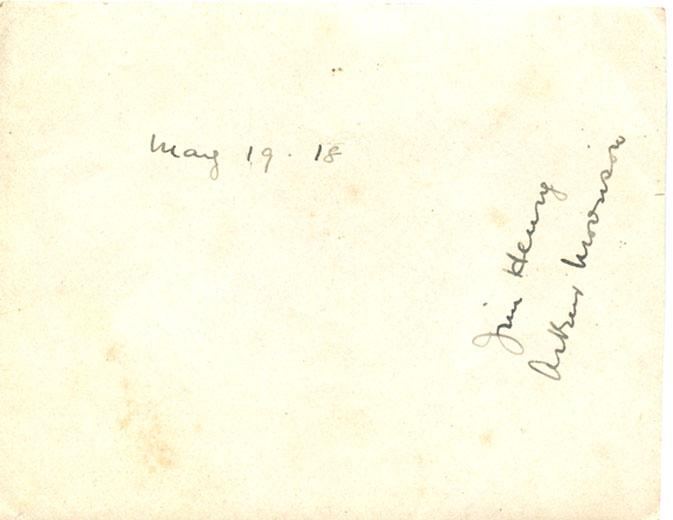 May 19. 18
Jim Henry
Morrison